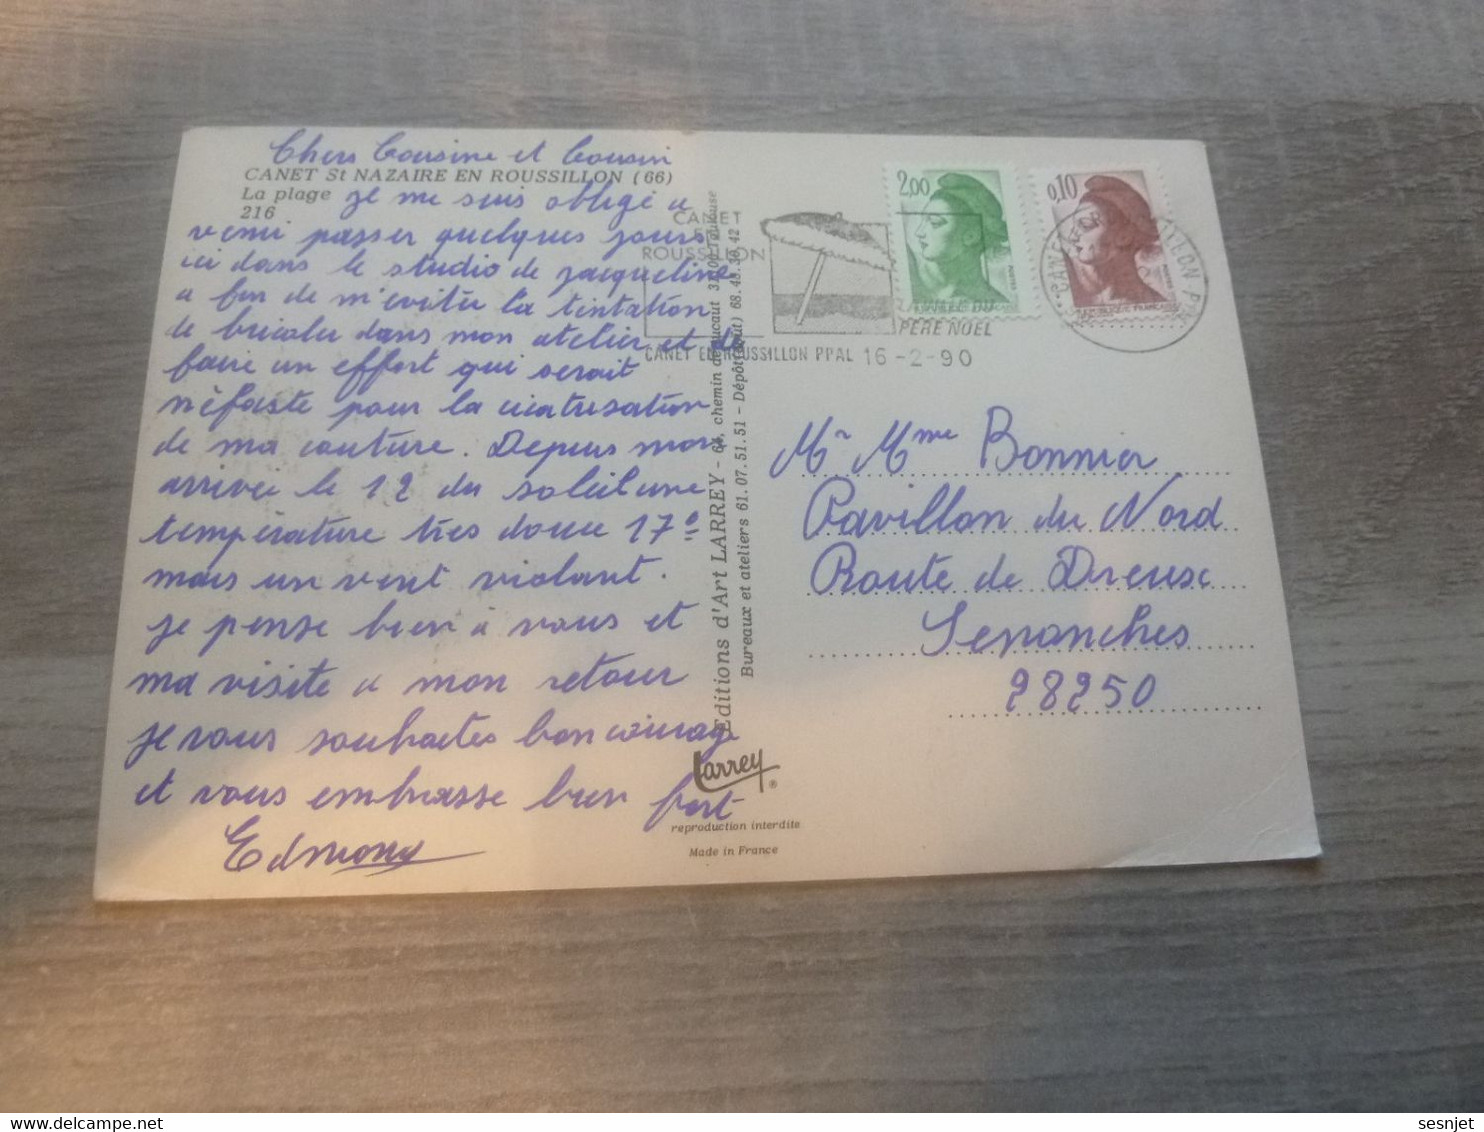 Chers Cousine et Cousin
CANET St NAZAIRE EN ROUSSILLON (66)
La plage
216
je me suis obligé a
venir passer quelques jours
ici dans le studio de jacqueline
a fin de m'eviter la tintation
de bricoler dans mon atelier et de
faire un effort qui serait
nèfaste pour la cicatrisation
de ma couture. Depuis mon
arrivée le 12 du soleil une
température très douce 17°
mais un vent violant.
je pense bien a vous et
ma visite a mon retour
je vous souhaites bon courage
et vous embrasse bien fort
Edmond
Editions d'Art LARREY - chemin
Bureaux et ateliers 61.07.51.51 - Dépôt
Larrey ®
reproduction interdite
Made in France
CANET
ROUSSILLON
PERE NOEL
CANET EN ROUSSILLON PPAL 16-2-90
2,00
0,10
Mr Mme Bonnier
Pavillon du Nord
Route de Dreux
Senonches
28250
sesnjet